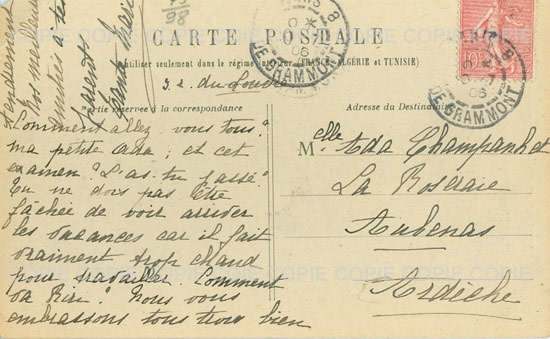 CARTE POSTALE
(utiliser seulement dans le régime intérieur (FRANCE, ALGÉRIE et TUNISIE)
réservée à la correspondance
Adresse du Destinataire
Comment allez vous tous?
ma petite Ada; et cet
examen? L'as-tu passé?
Tu ne dois pas être
fâchée de voir arriver
les vacances car il fait
vraiment trop chaud
pour travailler. Comment
va Riri? Nous vous
embrassons tous trois bien
tendrement
nos meilleures
amitiés à tes
parents
Melle Ada Champanhet
La Roseraie
Aubenas
Ardèche
PARIS 8
06
R. DE GRAMMONT
PARIS 8
06
R. DE GRAMMONT
98
COPIE COPIE COPIE COPIE COPIE